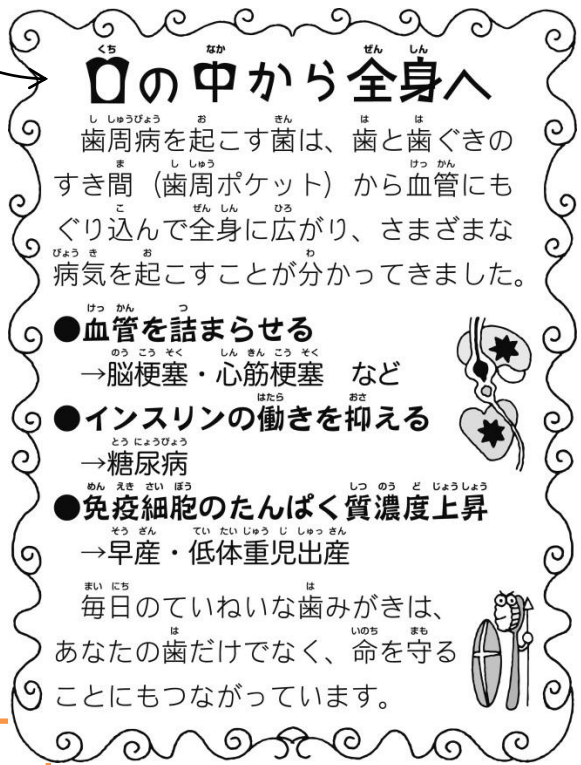 口の中から全身へ
歯周病を起こす菌は、歯と歯ぐきの
すき間（歯周ポケット）から血管にも
ぐり込んで全身に広がり、さまざまな
病気を起こすことが分かってきました。
●血管を詰まらせる
→脳梗塞・心筋梗塞　など
●インスリンの働きを抑える
→糖尿病
●免疫細胞のたんぱく質濃度上昇
→早産・低体重児出産
毎日のていねいな歯みがきは、
あなたの歯だけでなく、命を守る
ことにもつながっています。